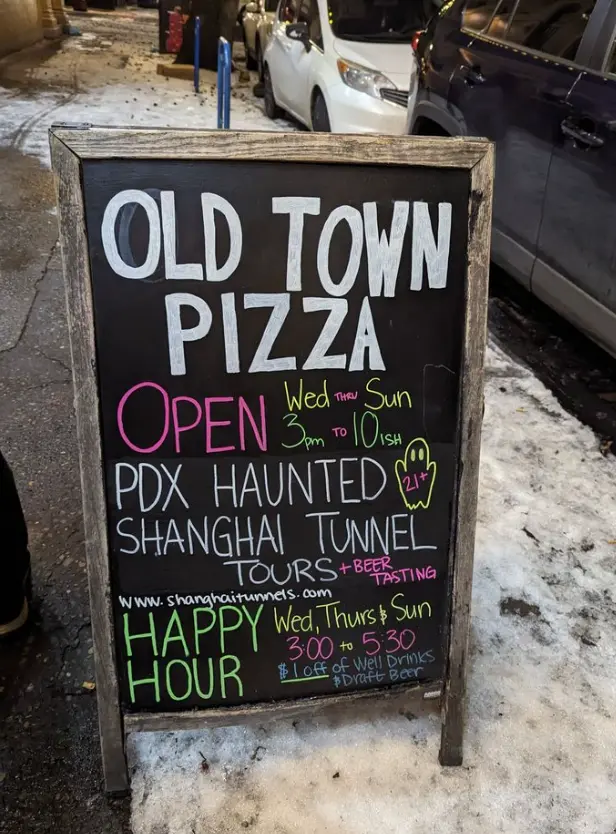 OLD TOWN
PIZZA
OPEN Wed THRU Sun
3pm TO 10ISH
PDX HAUNTED 21+
SHANGHAI TUNNEL
TOURS + BEER
TASTING
www.shanghaitunnels.com
HAPPY Wed, Thurs & Sun
HOUR 3:00 to 5:30
$1 off of Well Drinks
& Draft Beer